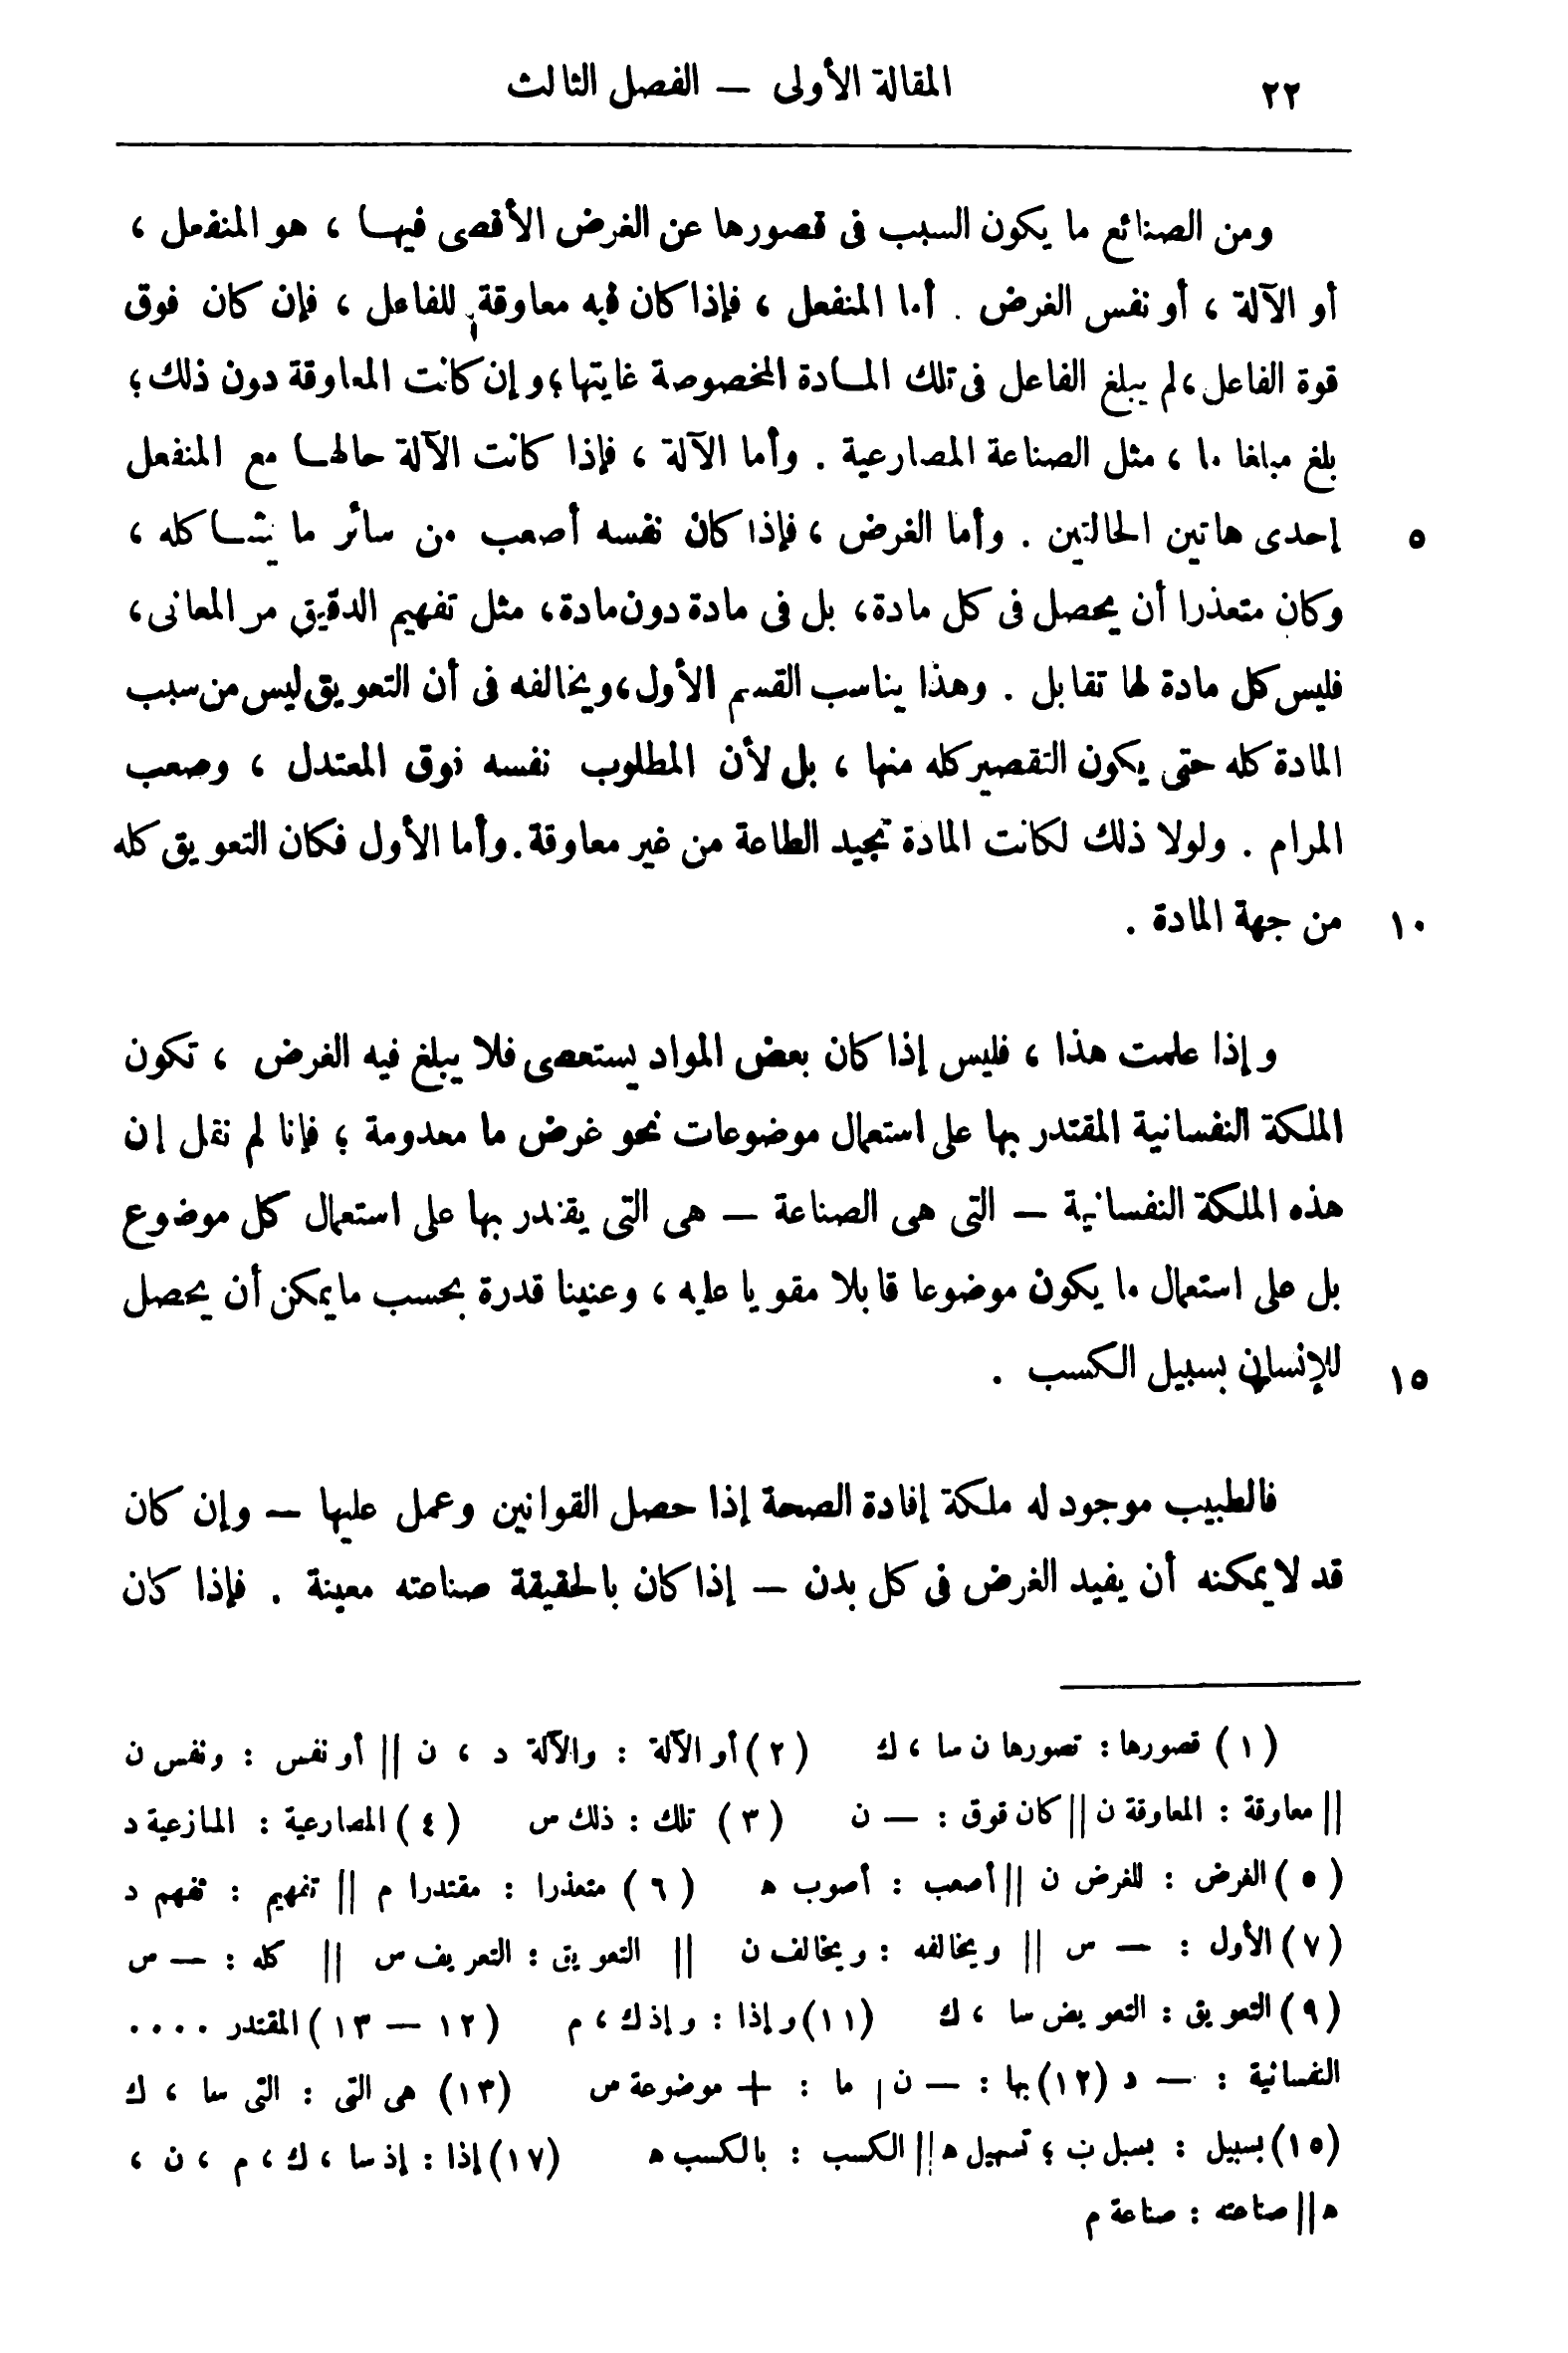 ٢٢ المقالة الأولى — الفصل الثالث
ومن الصنائع ما يكون السبب فى قصورها عن الغرض الأقصى فيها ، هو المنفعل ،
أو الآلة ، أو نفس الغرض . أما المنفعل ، فإذا كان فيه معاوقة للفاعل ، فإن كان فوق
قوة الفاعل ، لم يبلغ الفاعل فى تلك المادة المخصوصة غايتها ؛ وإن كانت المعاوقة دون ذلك ؛
بلغ مبلغا ما ، مثل الصناعة المصارعية . وأما الآلة ، فإذا كانت الآلة حالها مع المنفعل
٥ إحدى هاتين الحالتين . وأما الغرض ، فإذا كان نفسه أصعب من سائر ما يشاكله ،
وكان متعذرا أن يحصل فى كل مادة، بل فى مادة دون مادة، مثل تفهيم الدقيق من المعانى،
فليس كل مادة لها تقابل . وهذا يناسب القسم الأول، ويخالفه فى أن التعويق ليس من سبب
المادة كله حتى يكون التقصير كله منها ، بل لأن المطلوب نفسه فوق المعتدل ، وصعب
المرام . ولولا ذلك لكانت المادة تجيد الطاعة من غير معاوقة. وأما الأول فكان التعويق كله
١٠ من جهة المادة .
وإذا علمت هذا ، فليس إذا كان بعض المواد يستعصى فلا يبلغ فيه الغرض ، تكون
الملكة النفسانية المقتدر بها على استعمال موضوعات نحو غرض ما معدومة ؛ فإنا لم نقل إن
هذه الملكة النفسانية — التى هى الصناعة — هى التى يقتدر بها على استعمال كل موضوع
بل على استعمال ما يكون موضوعا قابلا مقويا عليه ، وعنينا قدرة بحسب ما يمكن أن يحصل
١٥ للإنسان بسبيل الكسب .
فالطبيب موجود له ملكة إفادة الصحة إذا حصل القوانين وعمل عليها — وإن كان
قد لا يمكنه أن يفيد الغرض فى كل بدن — إذا كان بالحقيقة صناعته معينة . فإذا كان
(١) قصورها : تصورها ن سا ، ك (٢) أو الآلة : والآلة د ، ن || أو نفس : ونفس ن
|| معاوقة : المعاوقة ن || كان فوق : — ن (٣) تلك : ذلك س (٤) المصارعية : المنازعية د
(٥) الغرض : للغرض ن || أصعب : أصوب ه (٦) متعذرا : مقتدرا م || تفهيم : تفهم د
(٧) الأول : — س || ويخالفه : ويخالف ن || التعويق : التعريف س || كله : — س
(٩) التعويق : التعويض سا ، ك (١١) وإذا : وإذ ك ، م (١٢ — ١٣) المقتدر ....
النفسانية : — د (١٢) بها : — ن | ما : + موضوعة س (١٣) هى التى : التى سا ، ك
(١٥) بسبيل : بسبل ب ؛ تسهيل ه || الكسب : بالكسب ه (١٧) إذا : إذ سا ، ك ، م ، ن ،
ه || صناعته : صناعة م